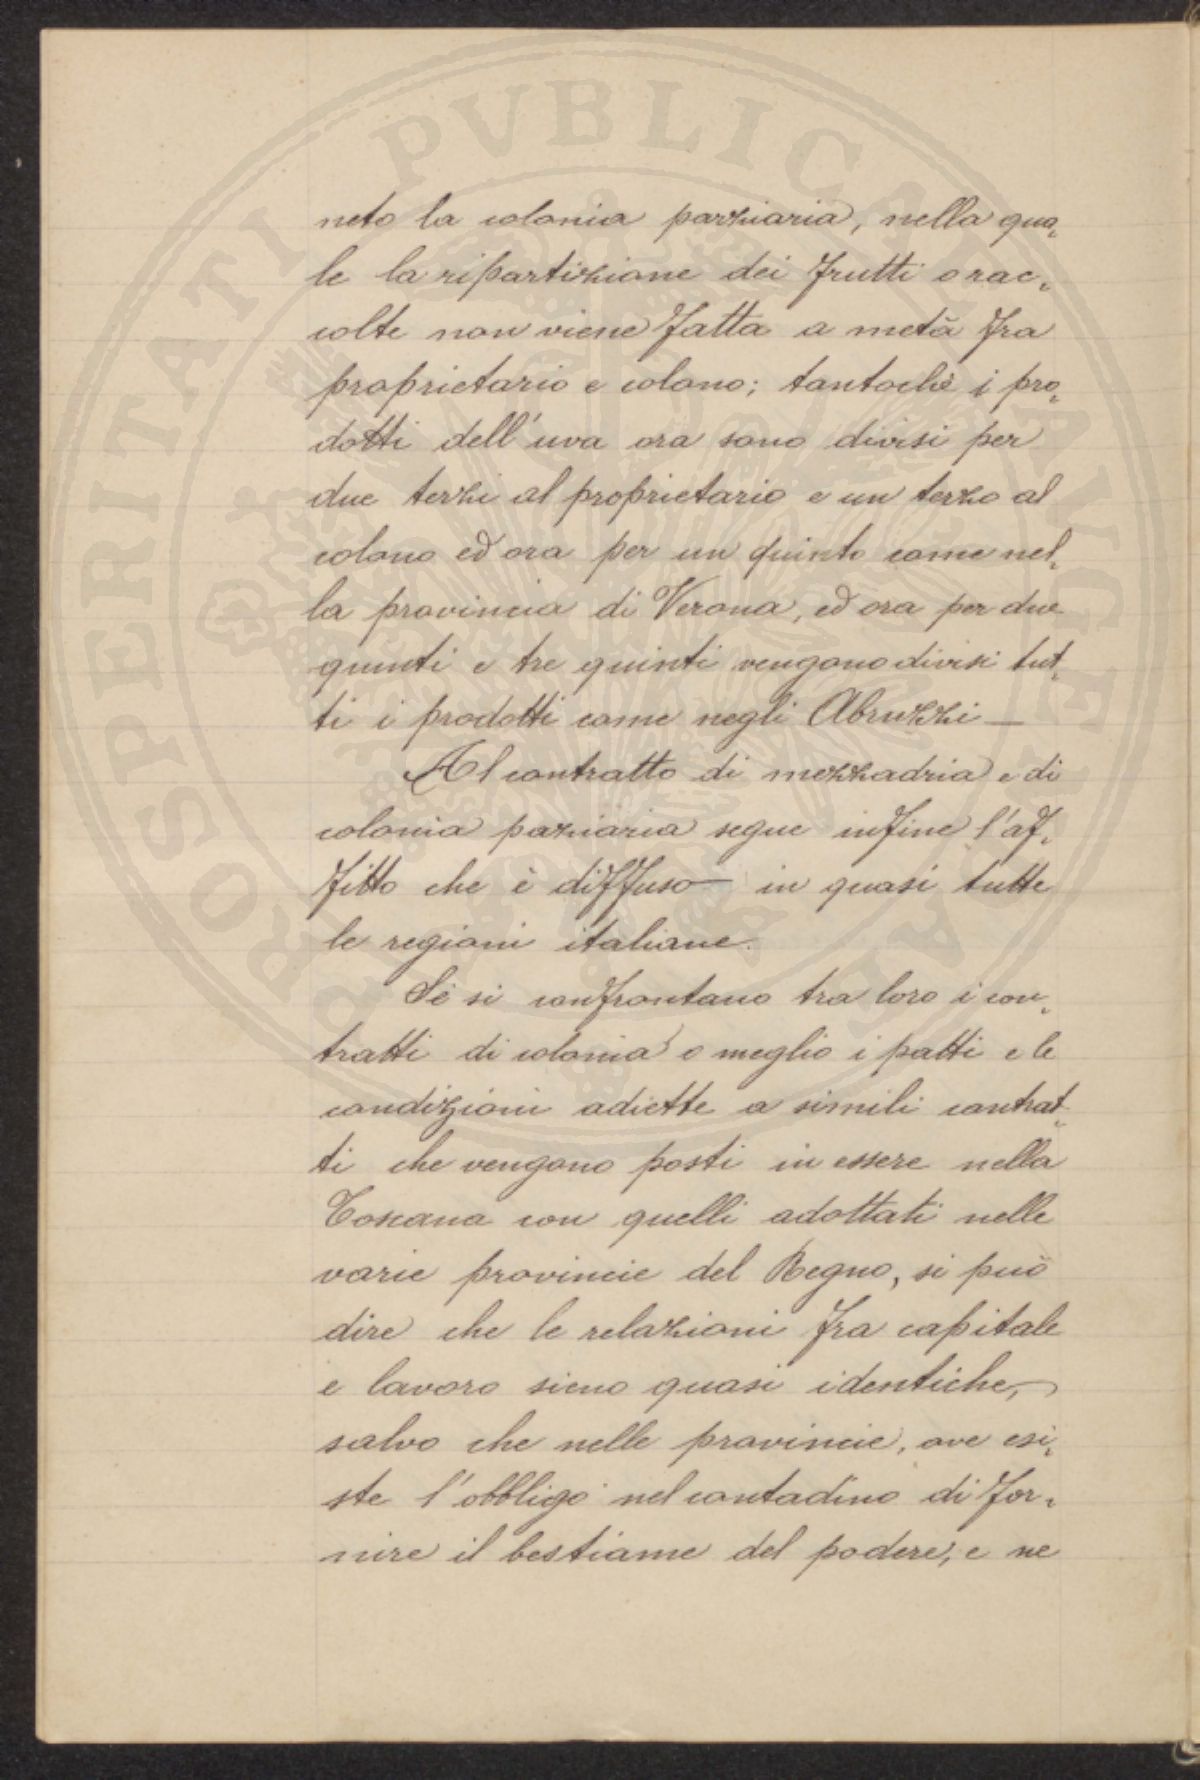 neto la colonia parziaria, nella qua-
le la ripartizione dei frutti o rac-
colte non viene fatta a metà fra
proprietario e colono; tantochè i pro-
dotti dell'uva ora sono divisi per
due terzi al proprietario e un terzo al
colono ed ora per un quinto come nel-
la provincia di Verona, ed ora per due
quinti e tre quinti vengono divisi tut-
ti i prodotti come negli Abruzzi —
Al contratto di mezzadria e di
colonia paziaria segue infine l'af-
fitto che è diffuso in quasi tutte
le regioni italiane.
Se si confrontano tra loro i con-
tratti di colonia o meglio i patti e le
condizioni adiette a simili contrat-
ti che vengono posti in essere nella
Toscana con quelli adottati nelle
varie provincie del Regno, si può
dire che le relazioni fra capitale
e lavoro sieno quasi identiche,
salvo che nelle provincie, ove esi-
ste l'obbligo nel contadino di for-
nire il bestiame del podere, e ne
PROSPERITATI PVBLICAE AVGENDAE